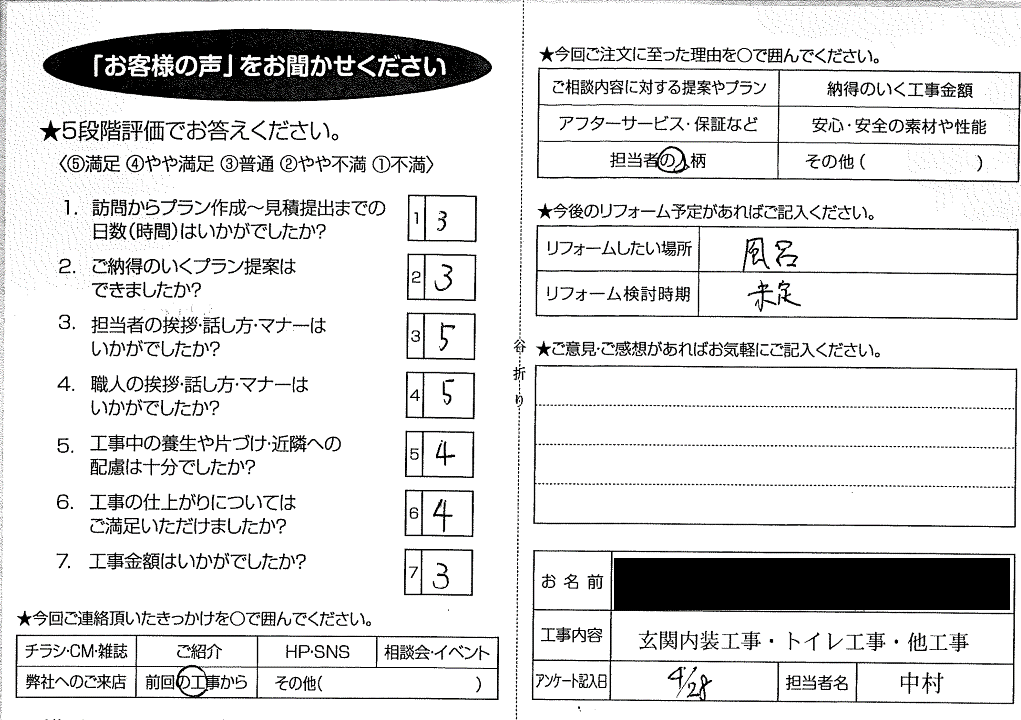 「お客様の声」をお聞かせください
★5段階評価でお答えください。
〈⑤満足 ④やや満足 ③普通 ②やや不満 ①不満〉
1. 訪問からプラン作成～見積提出までの
日数(時間)はいかがでしたか?
1 3
2. ご納得のいくプラン提案は
できましたか?
2 3
3. 担当者の挨拶・話し方・マナーは
いかがでしたか?
3 5
4. 職人の挨拶・話し方・マナーは
いかがでしたか?
4 5
5. 工事中の養生や片づけ・近隣への
配慮は十分でしたか?
5 4
6. 工事の仕上がりについては
ご満足いただけましたか?
6 4
7. 工事金額はいかがでしたか?
7 3
★今回ご連絡頂いたきっかけを○で囲んでください。
チラシ・CM・雑誌 ご紹介 HP・SNS 相談会・イベント
弊社へのご来店 前回の工事から その他( )
谷折り
★今回ご注文に至った理由を○で囲んでください。
ご相談内容に対する提案やプラン 納得のいく工事金額
アフターサービス・保証など 安心・安全の素材や性能
担当者の人柄 その他( )
★今後のリフォーム予定があればご記入ください。
リフォームしたい場所 風呂
リフォーム検討時期 未定
★ご意見・ご感想があればお気軽にご記入ください。
お名前
工事内容 玄関内装工事・トイレ工事・他工事
アンケート記入日 4/28 担当者名 中村